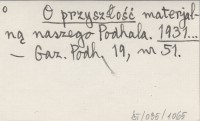 O przyszłość materjal-
ną naszego Podhala. 1931...
– Gaz. Podh. 19, nr 51.